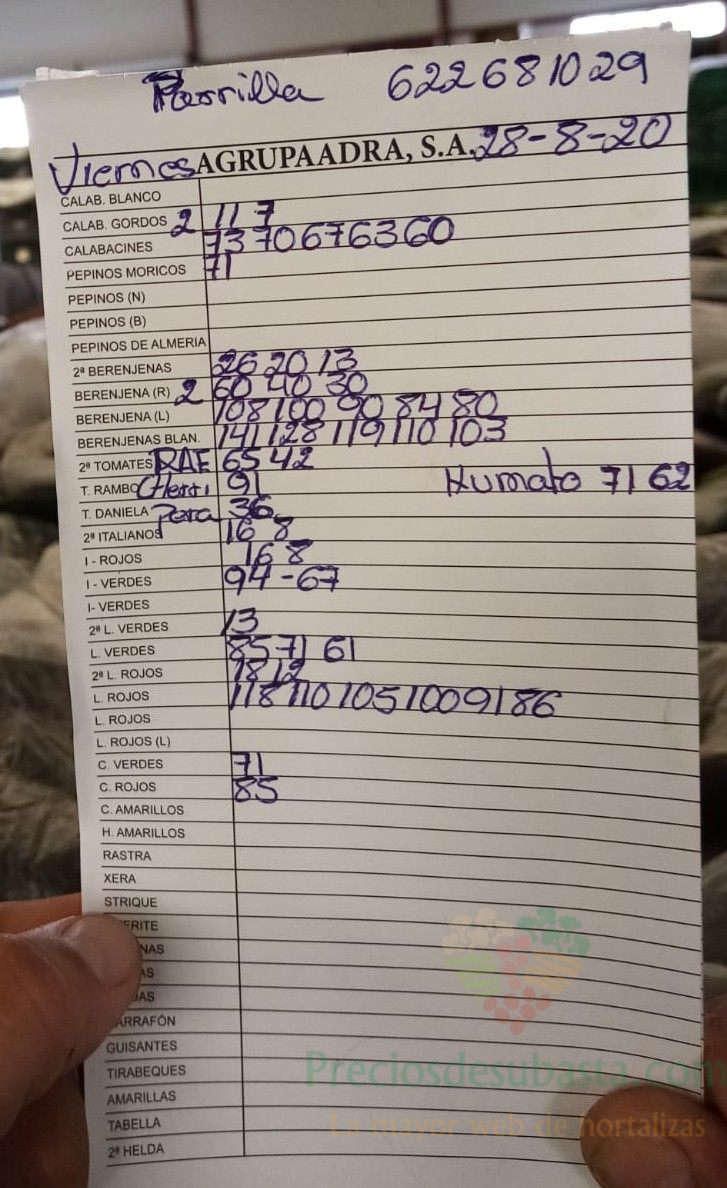 Parrilla 622681029
Viernes AGRUPAADRA, S.A. 28-8-20
CALAB. BLANCO
CALAB. GORDOS 2 11 7
CALABACINES 73 70 67 63 60
PEPINOS MORICOS 71
PEPINOS (N)
PEPINOS (B)
PEPINOS DE ALMERIA
2ª BERENJENAS 26 20 13
BERENJENA (R) 2 60 40 30
BERENJENA (L) 108 100 90 84 80
BERENJENAS BLAN. 141 128 119 110 103
2ª TOMATES RAF 65 42
T. RAMBO Cherri 91 Kumato 71 62
T. DANIELA Pera 36
2ª ITALIANOS 16 8
I - ROJOS 16 8
I - VERDES 94-67
I- VERDES
2ª L. VERDES 13
L. VERDES 85 71 61
2ª L. ROJOS 18 12
L. ROJOS 118 110 105 100 91 86
L. ROJOS
L. ROJOS (L)
C. VERDES 71
C. ROJOS 85
C. AMARILLOS
H. AMARILLOS
RASTRA
XERA
STRIQUE
ERITE
NAS
AS
AS
ARRAFÓN
GUISANTES
TIRABEQUES
AMARILLAS
TABELLA
2ª HELDA
Preciosdesubasta.com
La mayor web de hortalizas